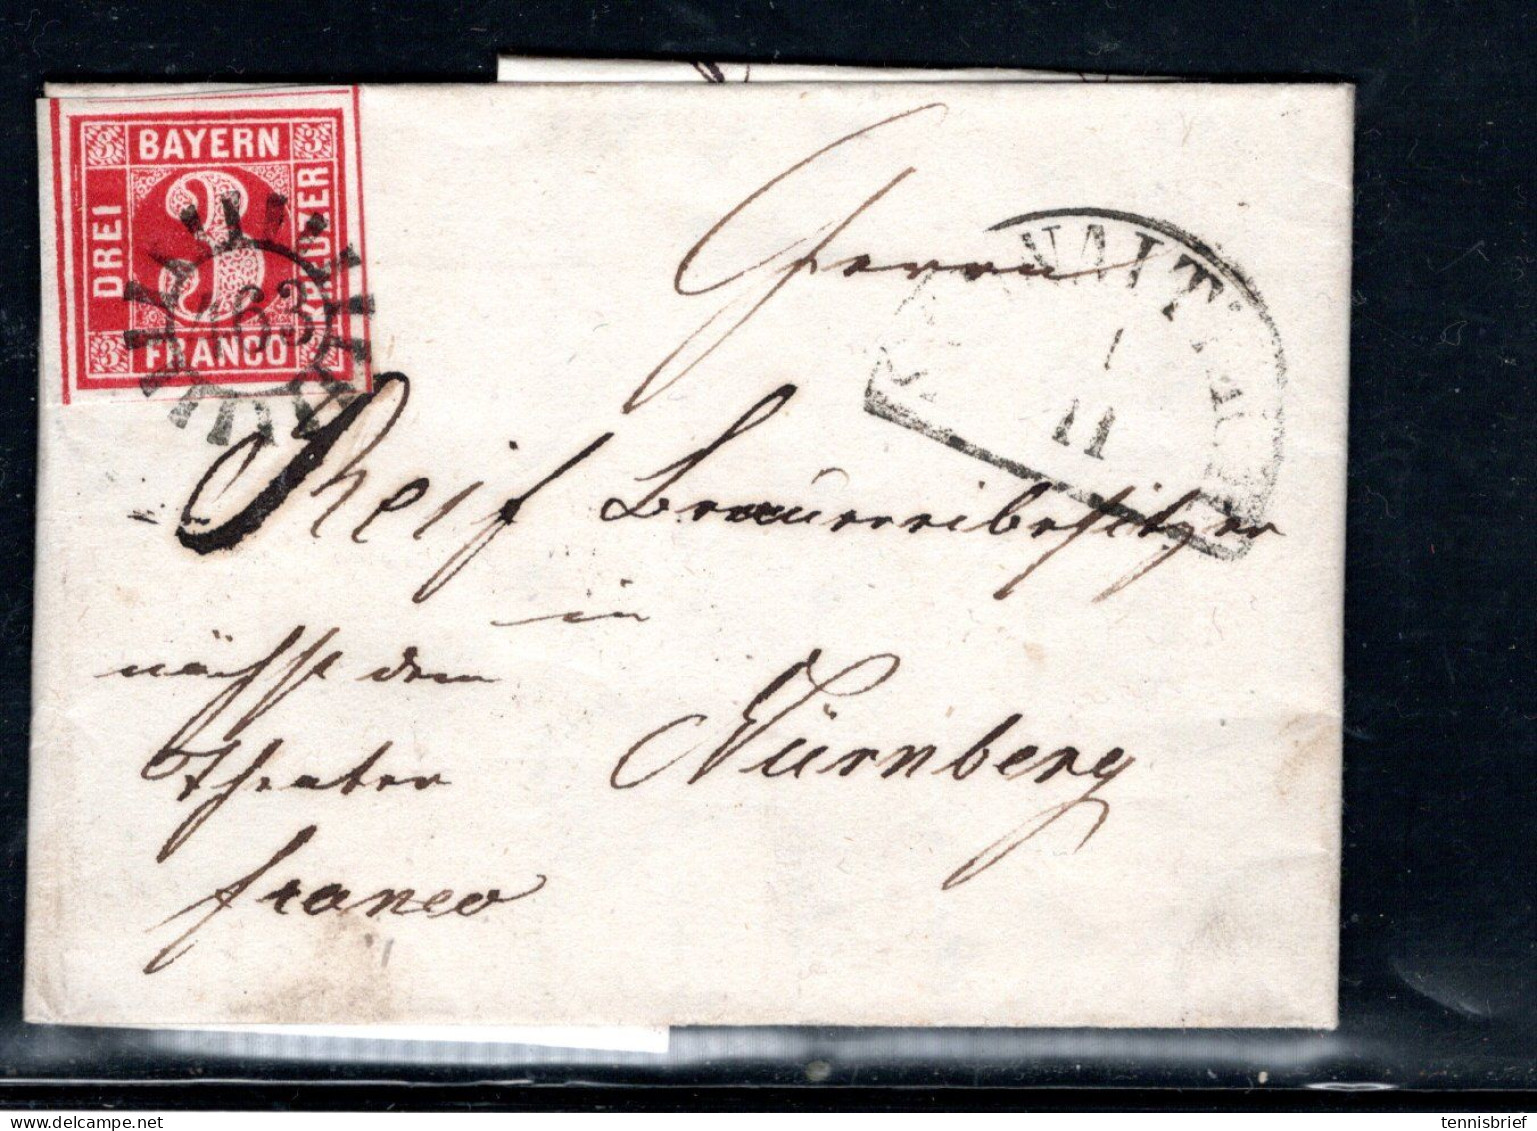 BAYERN
DREI
KREUZER
FRANCO
3 3
3
3
163
1
11
Herrn
Reif Brauereibesitzer
in
nächst dem
Nürnberg
Theater
franco
tennisbrief